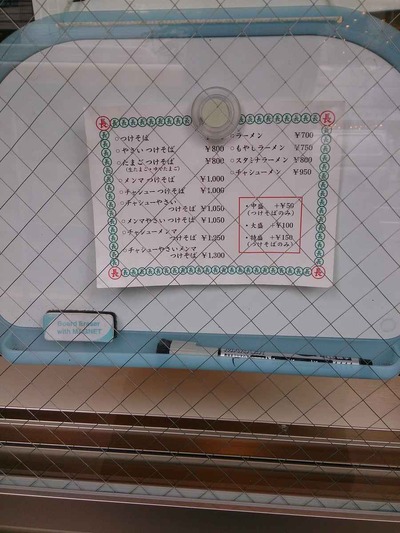 長
長
○つけそば
○やさい つけそば ¥800
○たまご つけそば ¥800
(生たまご・ゆでたまご)
○メンマ つけそば ¥1,000
○チャシュー つけそば ¥1,000
○チャシューやさい
つけそば ¥1,050
○メンマやさい つけそば ¥1,050
○チャシューメンマ
つけそば
○チャシューやさいメンマ
つけそば ¥1,300
○ラーメン ¥700
○もやしラーメン ¥750
○スタミナラーメン ¥800
○チャシューメン ¥950
・中盛 +¥50
(つけそばのみ)
・大盛 +¥100
・特盛 +¥150
(つけそばのみ)
長
長
Board Eraser
with MAGNET